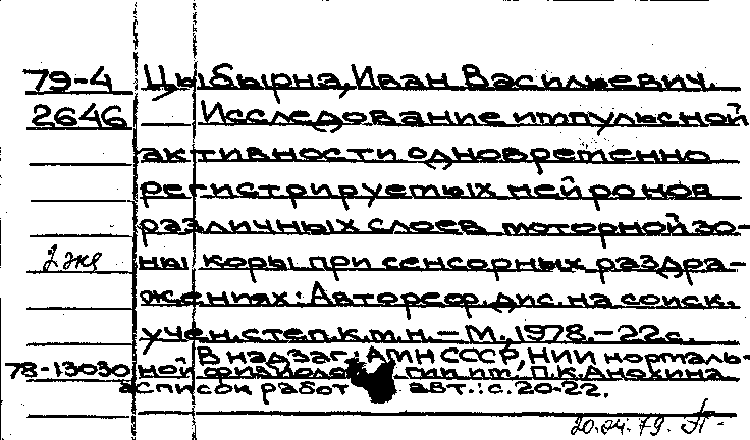 79-4 Цыбырна, Иван Васильевич.
2646 Исследование импульсной
активности одновременно
регистрируемых нейронов
различных слоев моторной зо-
2 экз ны коры при сенсорных раздра-
жениях: Автореф. дис. на соиск.
учен. степ. к.м.н. — М., 1978. — 22 с.
В надзаг.: АМН СССР, НИИ нормаль-
78-13030 ной физиологии им. П.К. Анохина
список работ авт.: с. 20-22.
20.04.79.